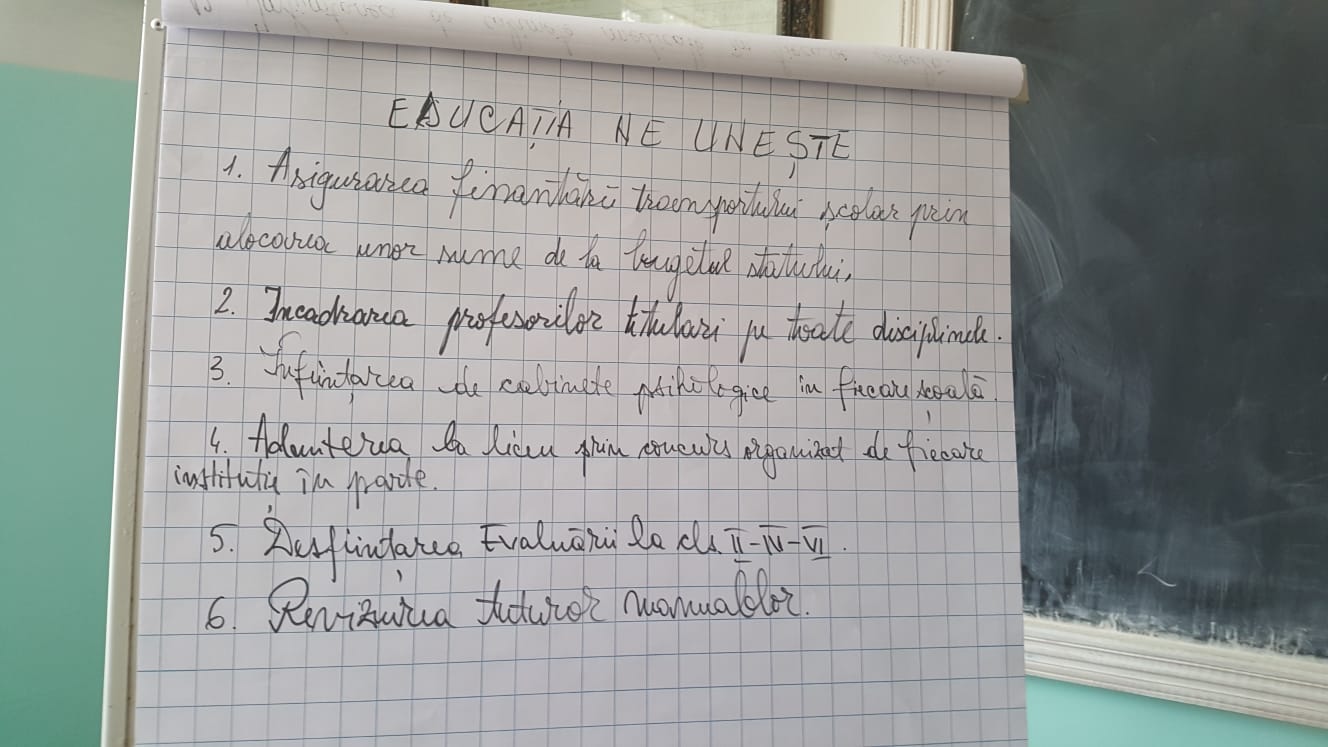 EDUCAȚIA NE UNEȘTE
1. Asigurarea finanțării transportului școlar prin
alocarea unor sume de la bugetul statului.
2. Încadrarea profesorilor titulari pe toate disciplinele.
3. Înființarea de cabinete psihologice în fiecare școală.
4. Admiterea la liceu prin concurs organizat de fiecare
instituție în parte.
5. Desființarea Evaluării la cls. II-IV-VI.
6. Revizuirea tuturor manualelor.